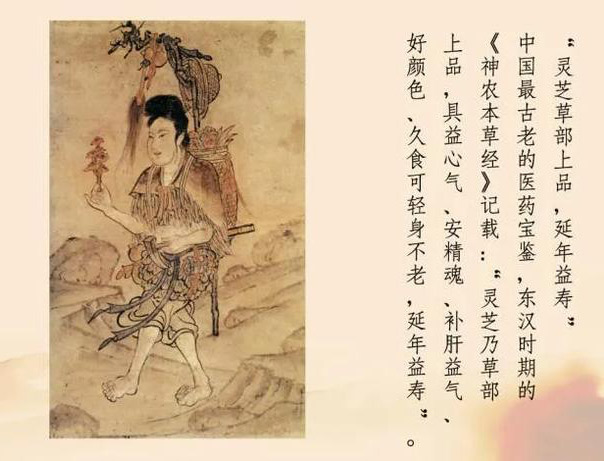 “灵芝草部上品，延年益寿”
中国最古老的医药宝鉴，东汉时期的
《神农本草经》记载：“灵芝乃草部
上品，具益心气、安精魂、补肝益气、
好颜色、久食可轻身不老，延年益寿”。